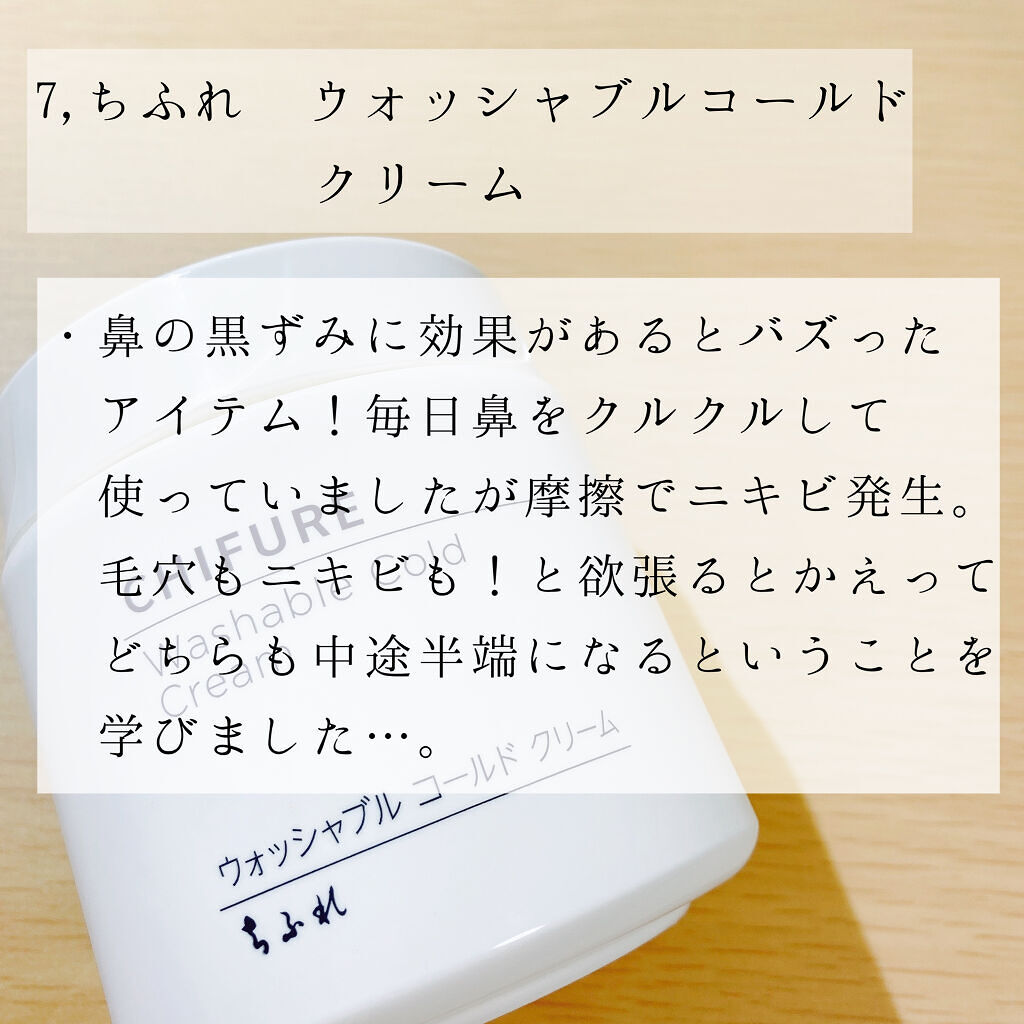 7,ちふれ　ウォッシャブルコールド
クリーム
・鼻の黒ずみに効果があるとバズった
アイテム！毎日鼻をクルクルして
使っていましたが摩擦でニキビ発生。
毛穴もニキビも！と欲張るとかえって
どちらも中途半端になるということを
学びました…。
CHIFURE
Washable Cold
Cream
ウォッシャブル コールド クリーム
ちふれ